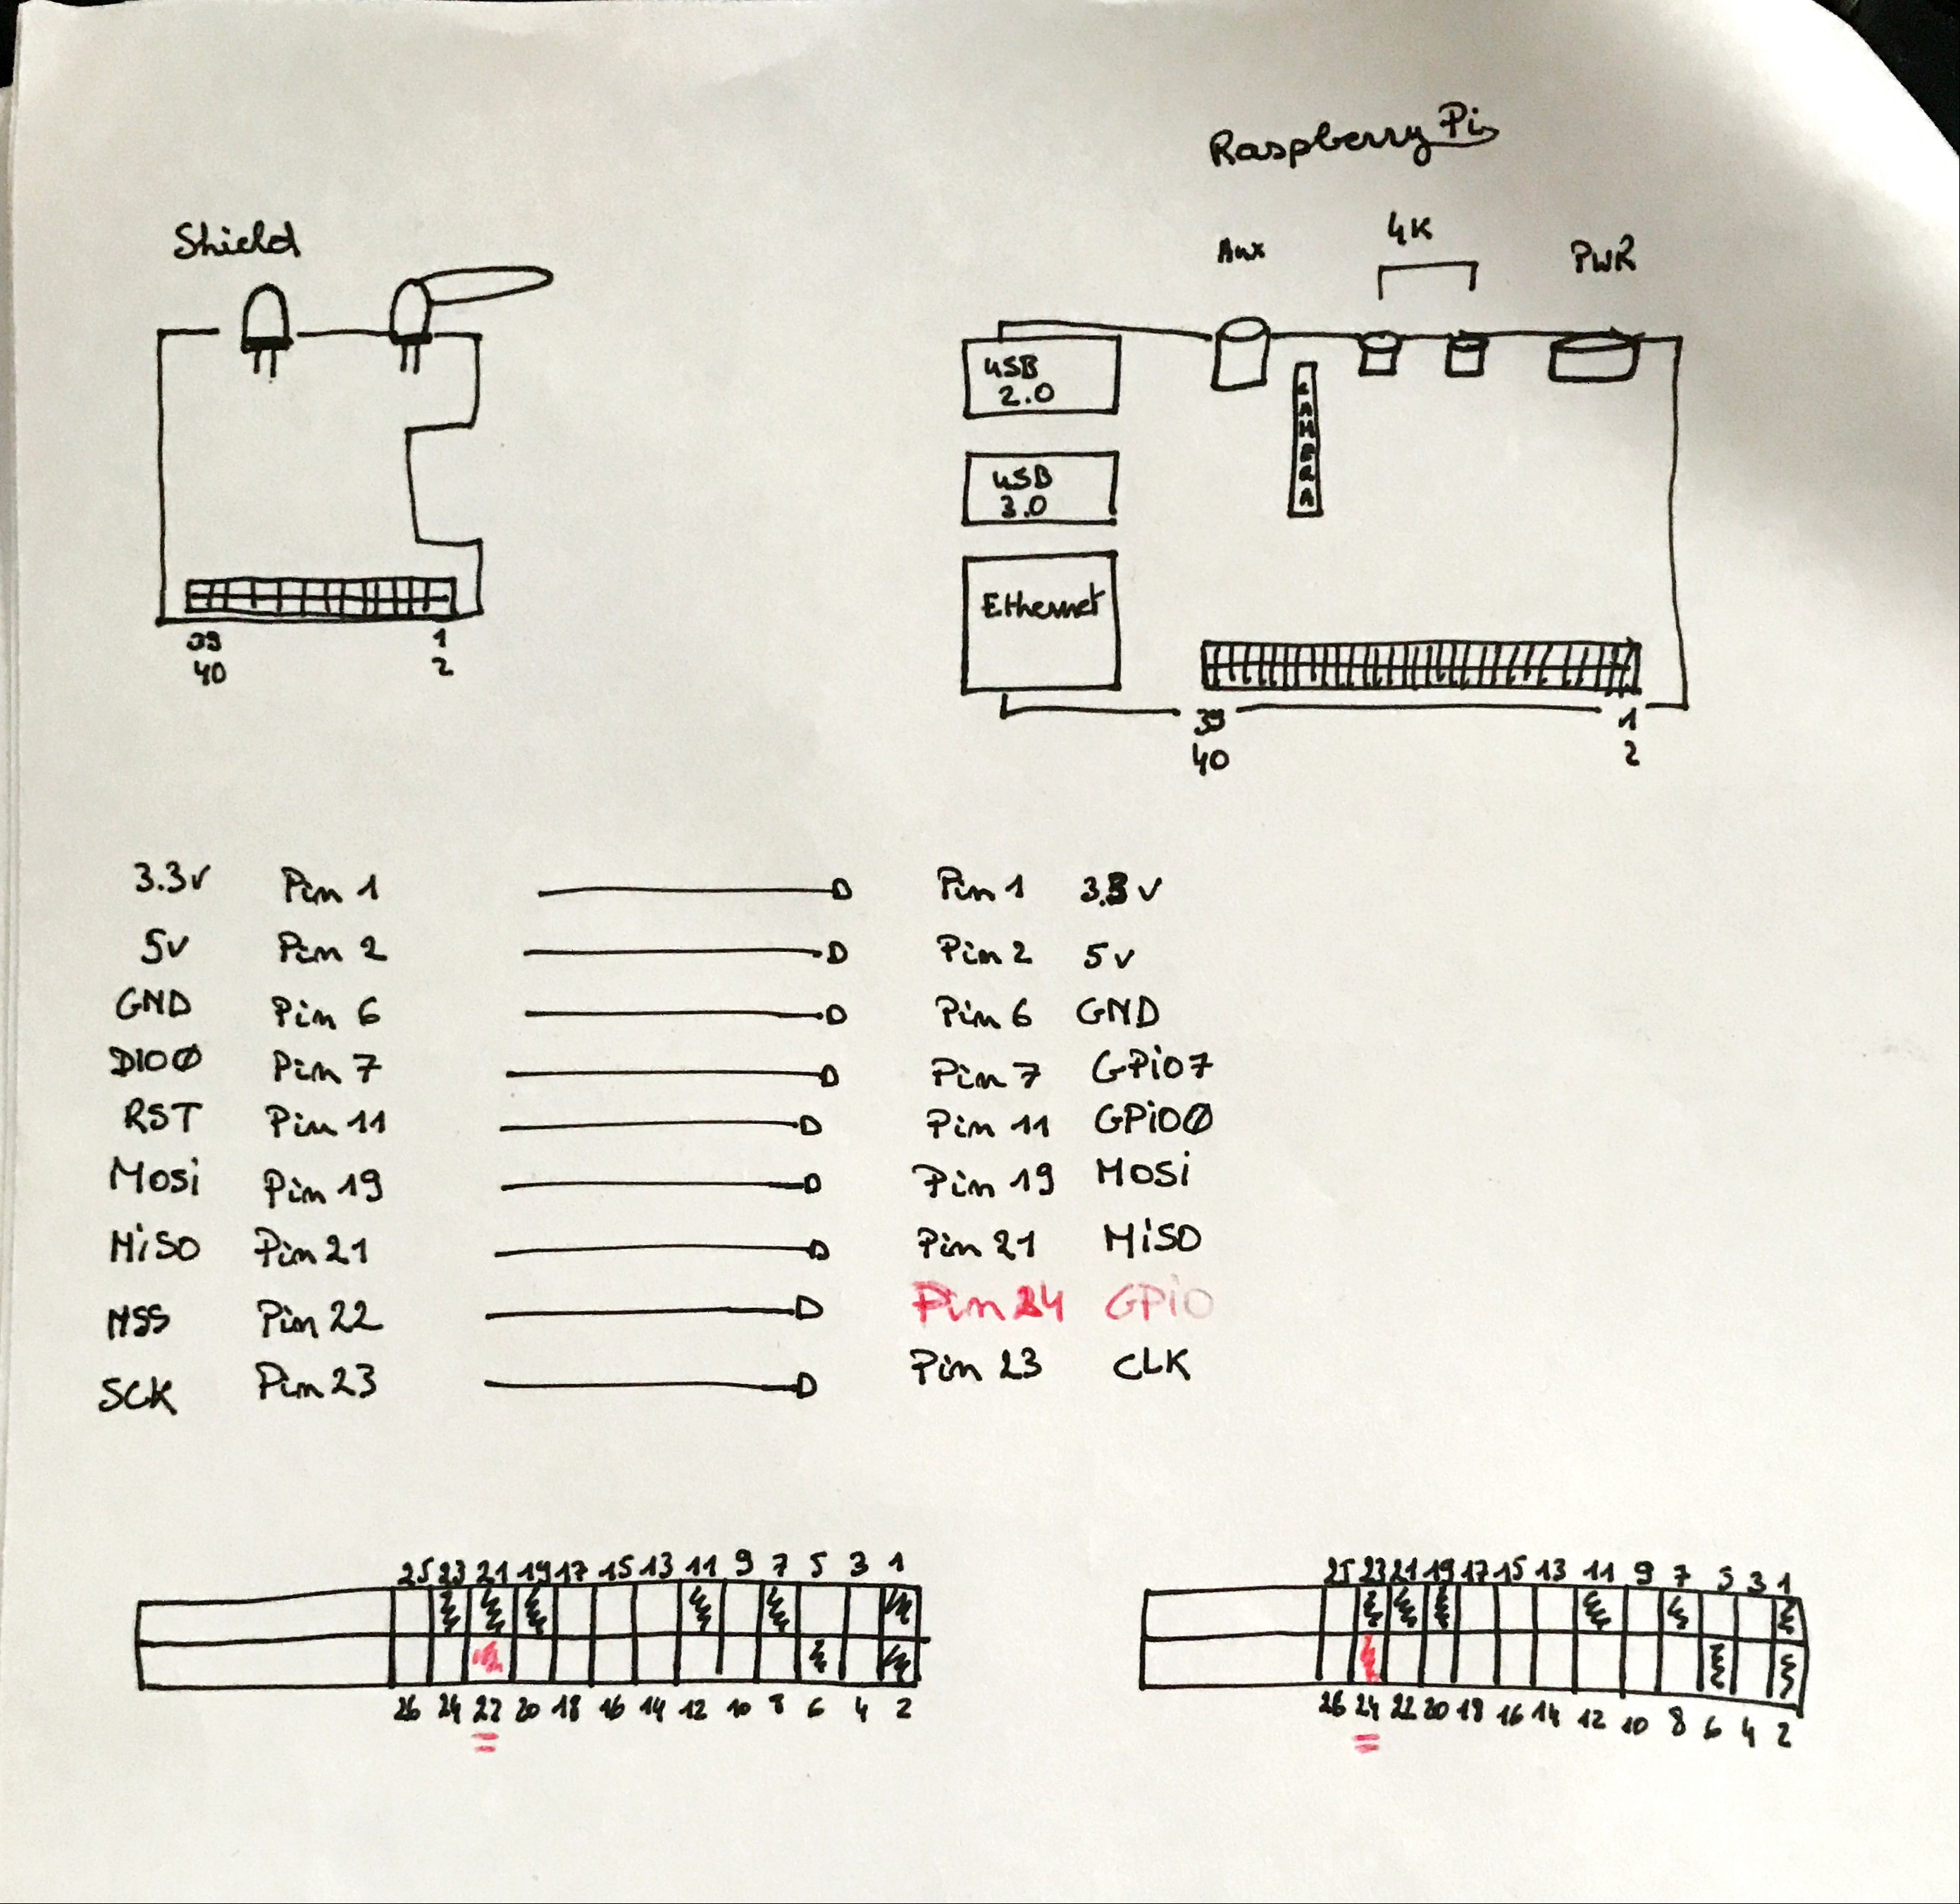 Raspberry Pi
Shield
Aux 4K PWR
USB
2.0
CAMERA
USB
3.0
Ethernet
39 1
40 2
39 1
40 2
3.3v Pin 1 Pin 1 3.3v
5v Pin 2 Pin 2 5v
GND Pin 6 Pin 6 GND
DIO0 Pin 7 Pin 7 GPiO7
RST Pin 11 Pin 11 GPiO0
Mosi Pin 19 Pin 19 MOSi
MiSO Pin 21 Pin 21 MiSO
NSS Pin 22 Pin 24 GPiO
SCK Pin 23 Pin 23 CLK
25 23 21 19 17 15 13 11 9 7 5 3 1
26 24 22 20 18 16 14 12 10 8 6 4 2
25 23 21 19 17 15 13 11 9 7 5 3 1
26 24 22 20 18 16 14 12 10 8 6 4 2